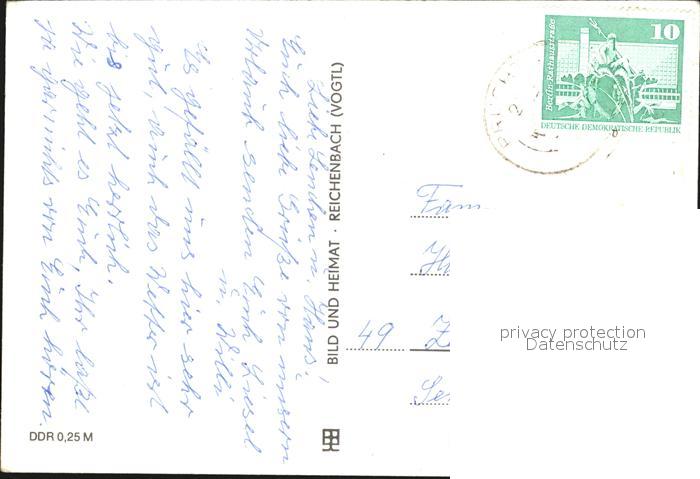 Liebe Lenchen u. Hans!
Euch liebe Grüße von unsern
Urlaub senden Euch Liesel
u. Willi
Es gefällt uns hier sehr
gut, auch das Wetter ist
bis jetzt herrlich.
Wie geht es Euch, Ihr laßt
ja gar nichts von Euch hören.
BILD UND HEIMAT · REICHENBACH (VOGTL)
DDR 0,25 M
10
Berlin-Rathausstraße
DEUTSCHE DEMOKRATISCHE REPUBLIK
Fam
49 Z
privacy protection
Datenschutz